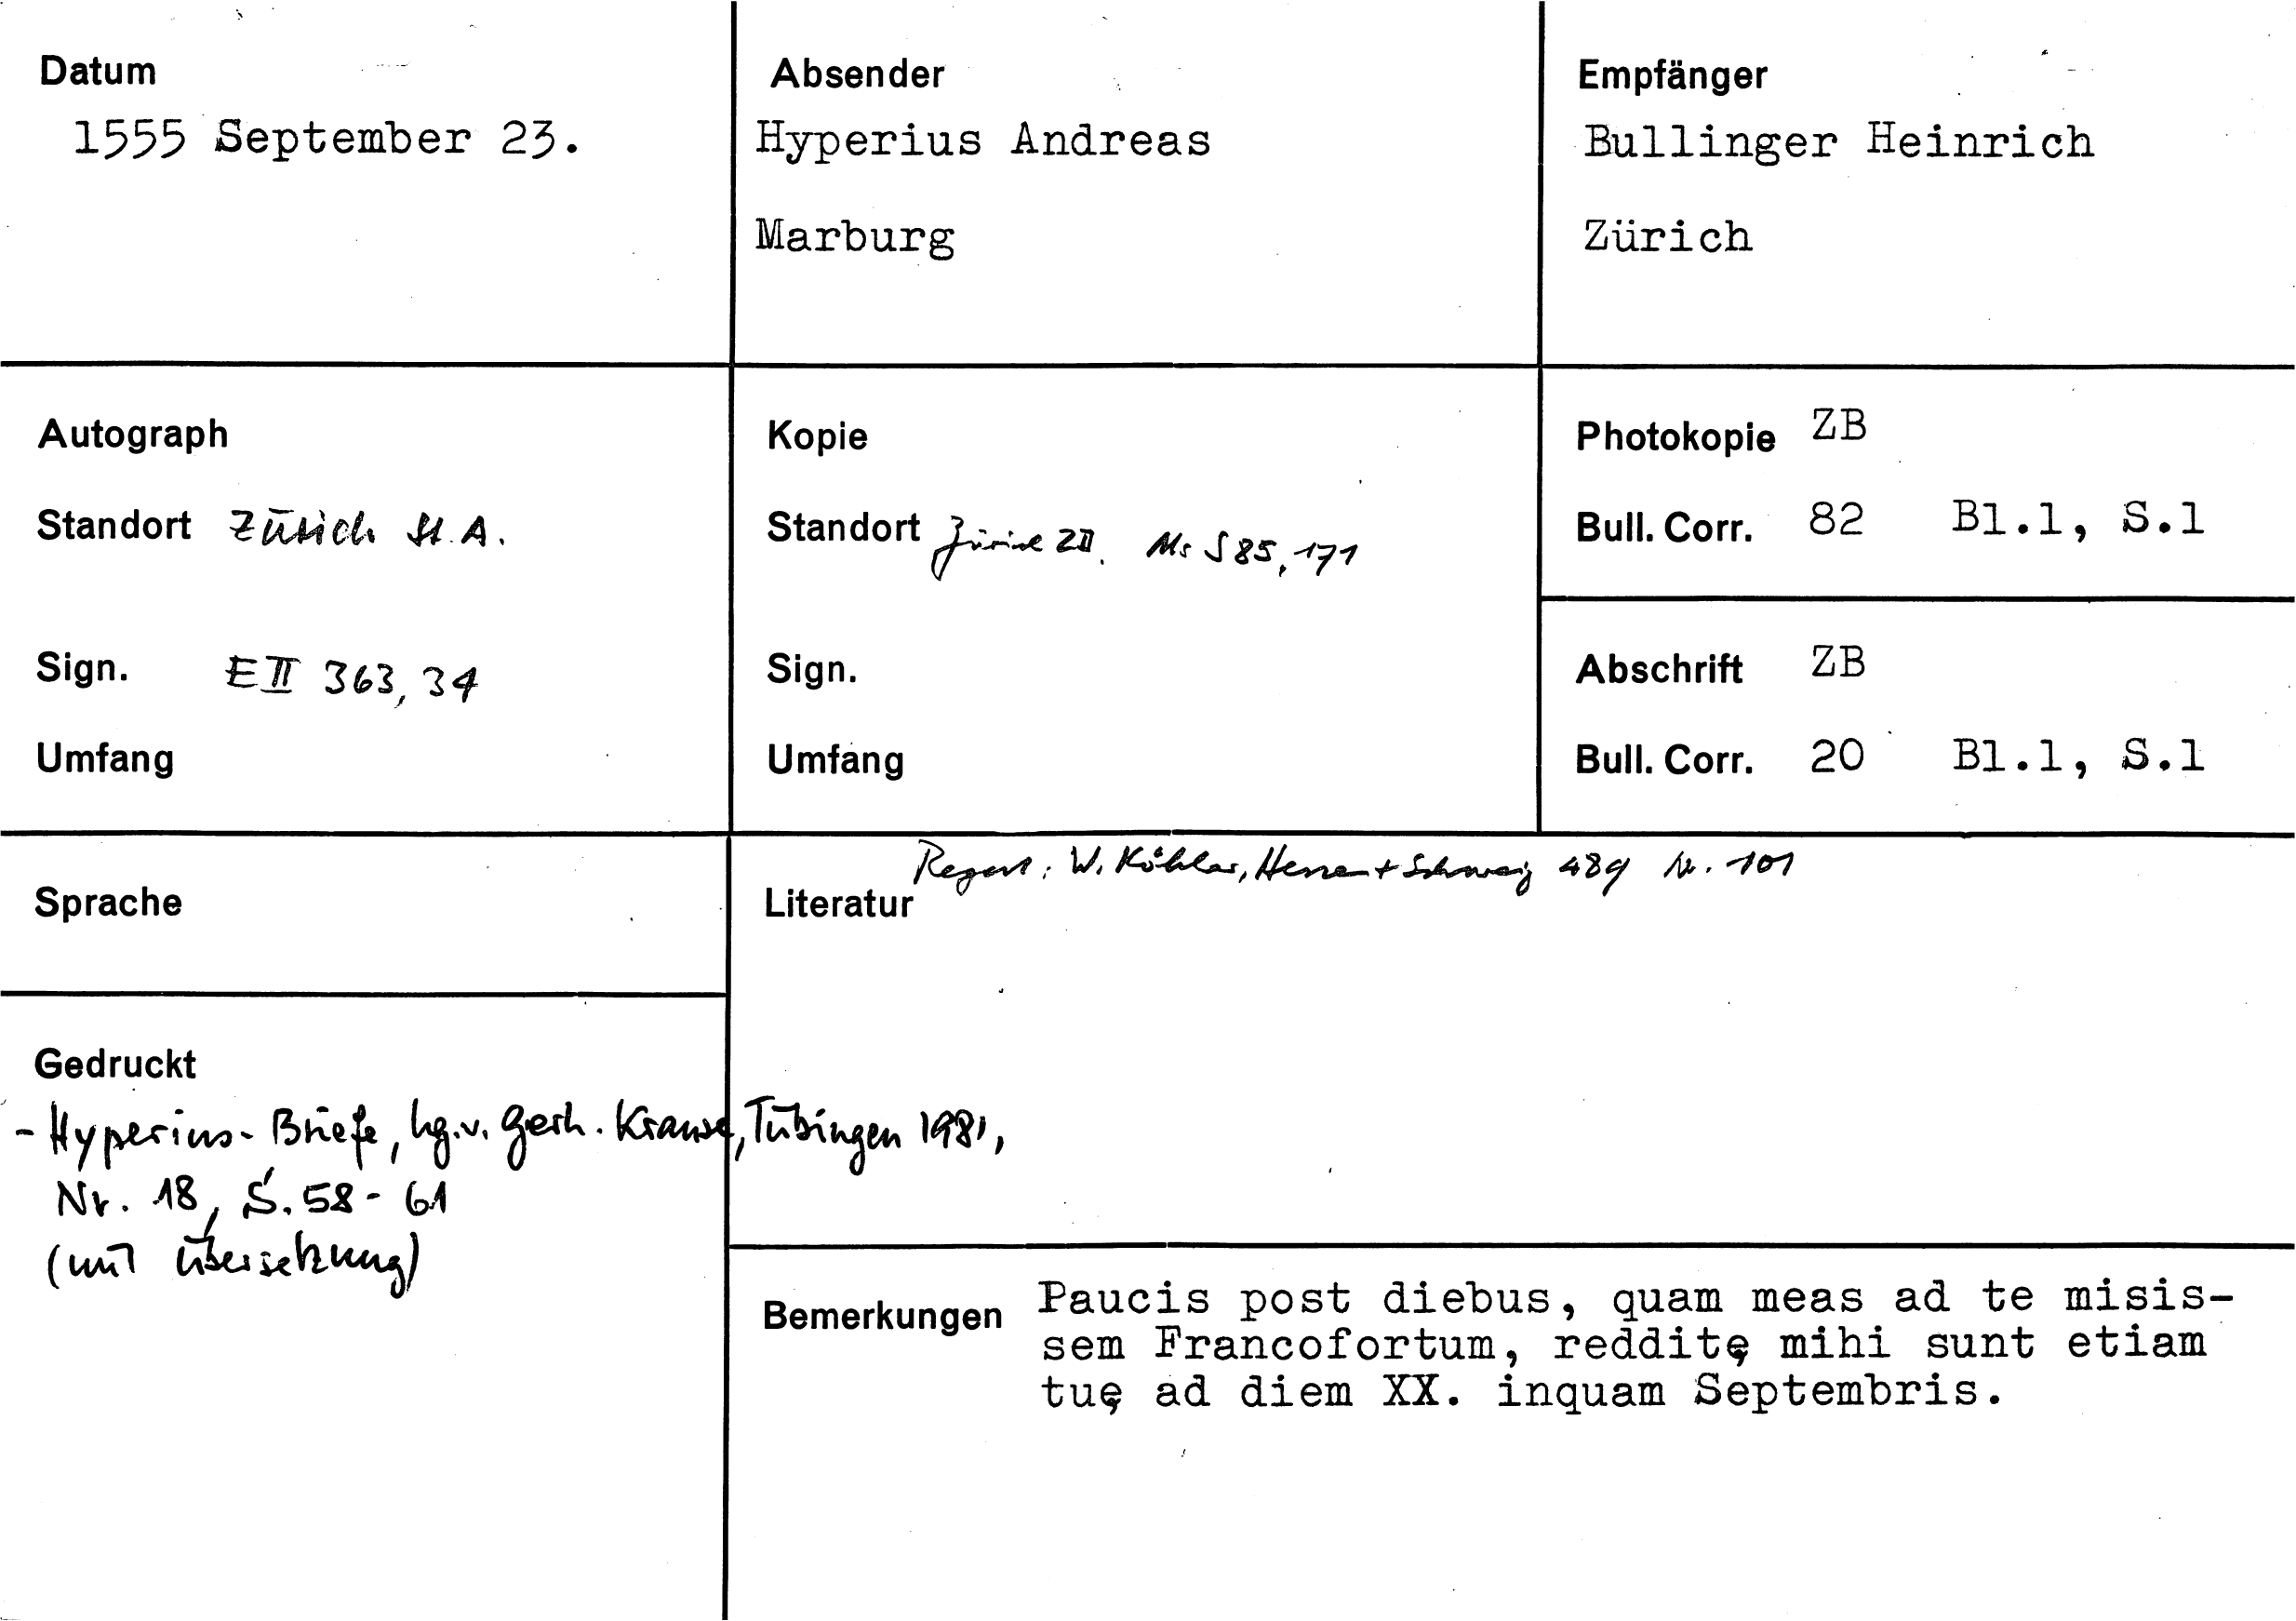 Datum
1555 September 23.
Absender
Hyperius Andreas
Marburg
Empfänger
Bullinger Heinrich
Zürich
Autograph
Standort Zürich St.A.
Sign. E II 363, 34
Umfang
Kopie
Standort Zürich ZB. Ms S 85, 171
Sign.
Umfang
Photokopie ZB
Bull. Corr. 82 Bl.1, S.1
Abschrift ZB
Bull. Corr. 20 Bl.1, S.1
Sprache
Regest: W. Köhler, Hessen + Schweiz 489 Nr. 101
Literatur
Gedruckt
- Hyperius-Briefe, hg.v. Gerh. Krause, Tübingen 1981,
Nr. 18, S. 58-61
(mit Übersetzung)
Bemerkungen
Paucis post diebus, quam meas ad te misis-
sem Francofortum, redditę mihi sunt etiam
tuę ad diem XX. inquam Septembris.